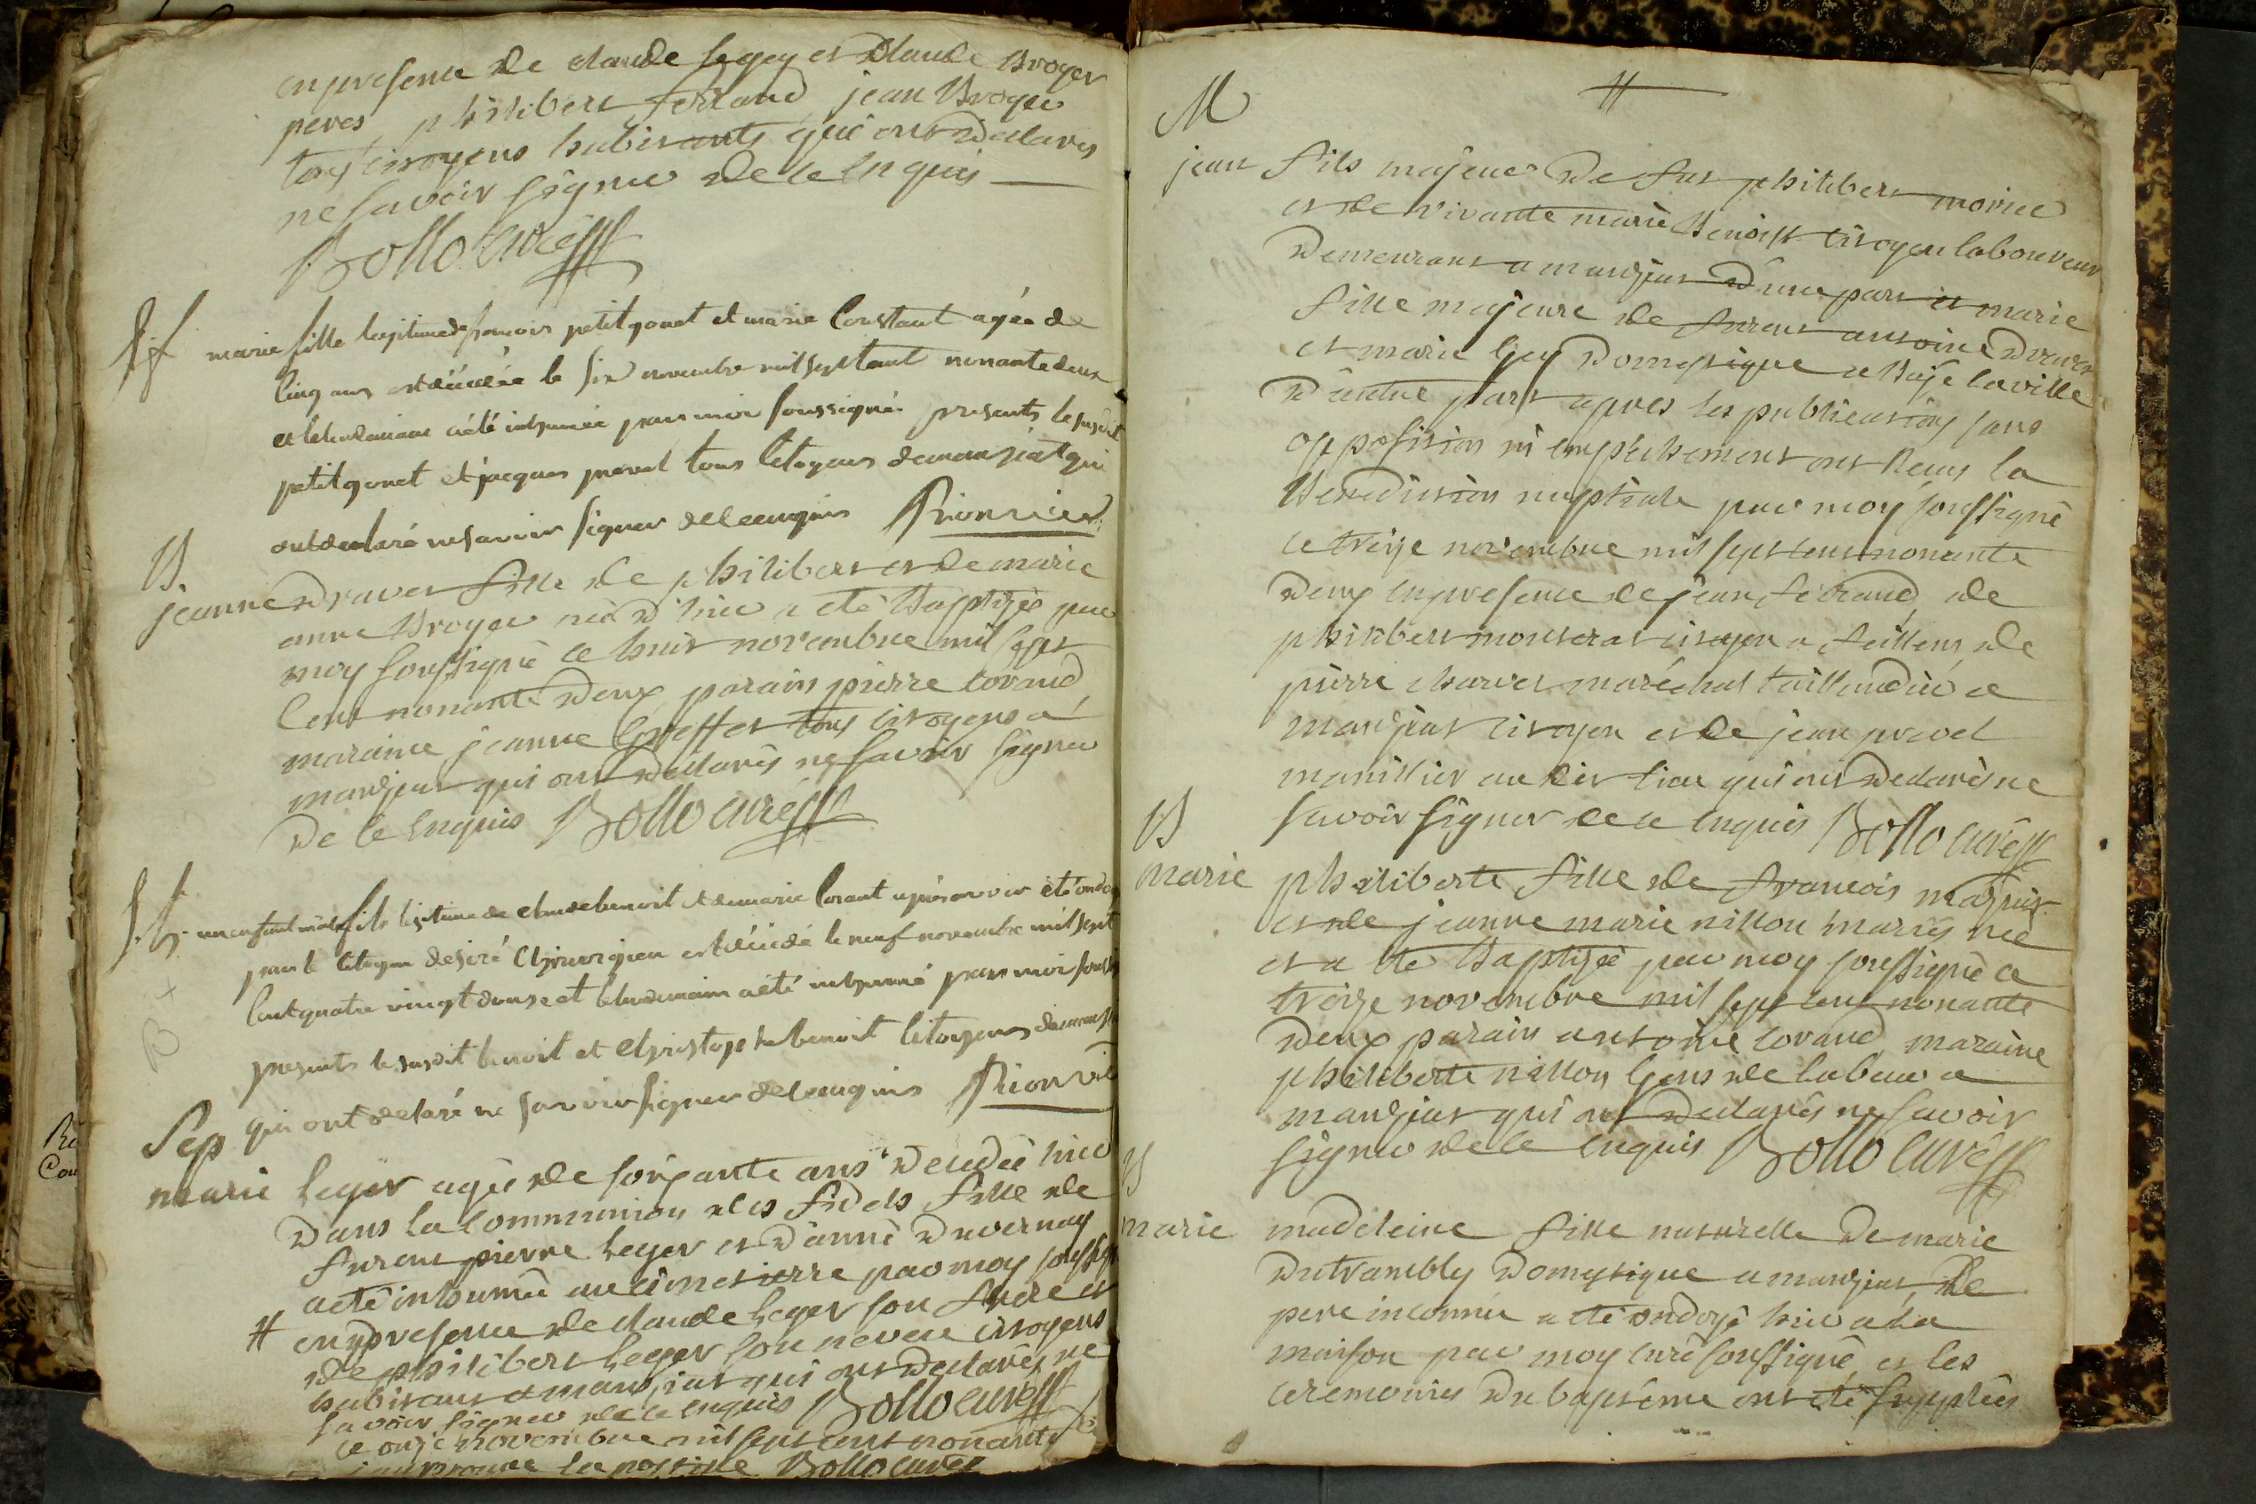 en presence de claude legey et Claude Broyer
peres, philibert ferrand, jean Broyer
tous citoyens habitants qui ont declarés
ne savoir signer de ce enquis
Bollo curé
marie fille legitime de francois petitgonet et marie Constant agée de
cinq ans est décédée le six novembre mil sept cent nonante deux
et le lendemain a été inhumée par moi soussigné presents le susdit
petitgonet et jacques prevel tous citoyens de manziat qui
ont declaré ne savoir signer de ce enquis
B.
jeanne Dravet fille de philibert et de marie
anne Broyer née d'hier a eté Baptizée par
moy soussigné ce huit novembre mil sept
cent nonante deux parain pierre Corand,
maraine jeanne tous citoyens a
manziat qui ont declarés ne savoir signer
de ce enquis Bollo curé
un enfant mâle fils legitime de claude benoit et de marie Corant après avoir été ondoyé
par le citoyen desiré Chirurgien est décédé le neuf novembre mil sept
cent quatre vingt douze et le lendemain a été inhumé par moi
presents le susdit benoit et Christophe benoit citoyens de
qui ont declaré ne savoir signer de ce enquis
Sep
marie Leger agée de soixante ans decedée hier
dans la communion des fidels fille de
furent pierre Leger et d'anne Duvernay
a eté inhumée au cimetierre par moy
# en presence de claude Leger son frere et
de philibert Leger son neveu citoyens
habitant a manziat qui ont declarés ne
savoir signer de ce enquis Bollo curé
ce onze novembre mil sept cent nonante
Bollo curé
#
M
jean fils majeur de fut philibert morier
et de vivante marie Benoist citoyen laboureur
demeurant a manziat d'une part et marie
fille majeure de furent antoine Dravet
et marie Gey domestique a Bagé la ville
d'autre part apres les publications sans
opposition ni empechement ont Reçus la
Benediction nuptiale par moy soussigné
ce treize novembre mil sept cent nonante
deux en presence de jean ferrand, de
philibert monterat citoyen a feillens, de
pierre charvet maréchal taillandier a
manziat citoyen et de jean prevel
manillier au dit lieu qui ont declarés ne
savoir signer de ce enquis Bollo curé
B
marie philiberte fille de francois
et de jeanne marie nillon mariés née
et a eté Baptizée par moy soussigné ce
treize novembre mil sept cent nonante
deux parain antoine Corand, maraine
philiberte nillon Gens de labeur a
manziat qui ont declarés ne savoir
signer de ce enquis Bollo curé
B
marie madeleine fille naturelle de marie
dutrambly domestique a manziat, de
pere inconnu a eté ondoyé hier a la
maison par moy curé soussigné et les
ceremonies du baptême ont eté supplées